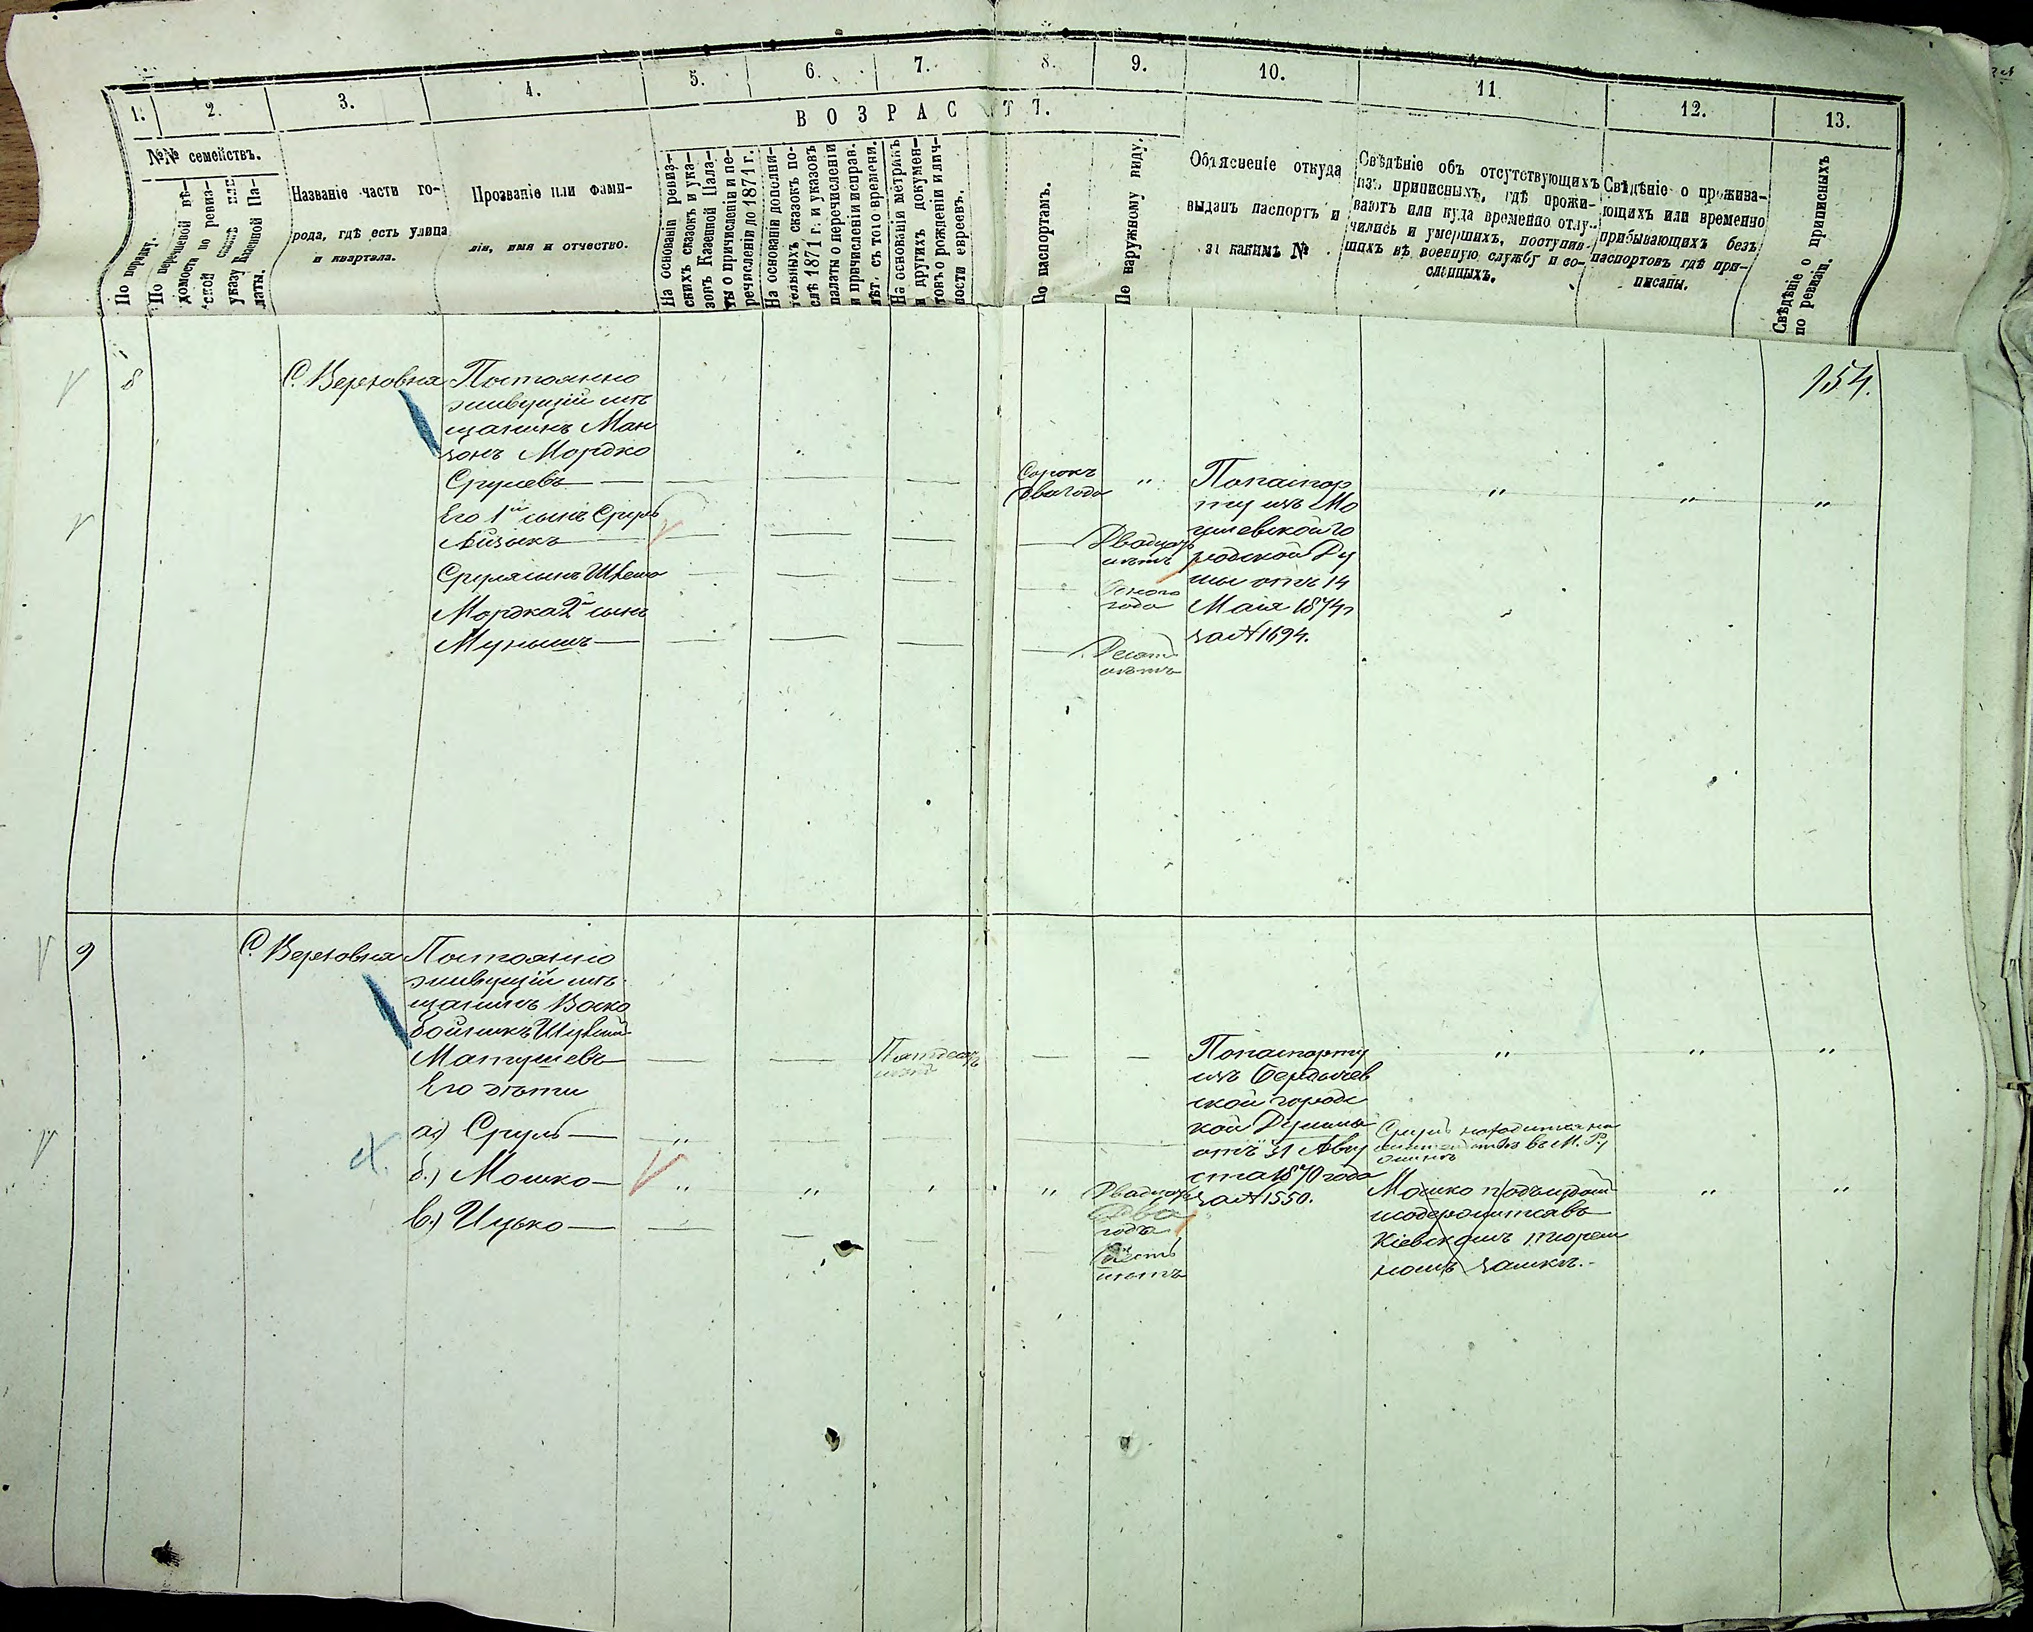 1. 2. 3. 4. 5. 6. 7. 8. 9. 10. 11. 12. 13.
ВОЗРАСТЪ.
№№ семействъ.
По порядку.
По перечневой вѣ-
домости по ревиз-
ской сказкѣ или
указу Казенной Па-
латы.
Названіе части го-
рода, гдѣ есть улица
и квартала.
Прозваніе или фами-
лія, имя и отчество.
На основаніи ревиз-
скихъ сказокъ и ука-
зовъ Казенной Пала-
ты о причисленіи и пе-
речисленіи по 1871 г.
На основаніи дополни-
тельныхъ сказокъ по-
слѣ 1871 г. и указовъ
палаты о перечисленіи
и причисленіи исправ.
лѣт. съ того времени.
На основаніи метрикъ
и другихъ докумен-
товъ о рожденіи и лич-
ности евреевъ.
По паспортамъ.
По наружному виду.
Объясненіе откуда
выданъ паспортъ и
за какимъ №
Свѣдѣніе объ отсутствующихъ
изъ приписныхъ, гдѣ прожи-
ваютъ или куда временно отлу-
чились и умершихъ, поступив-
шихъ въ военную службу и со-
сланныхъ.
Свѣдѣніе о прожива-
ющихъ или временно
прибывающихъ безъ
паспортовъ гдѣ при-
писаны.
Свѣдѣніе о приписныхъ
по ревизіи.
154.
8
С. Верховня
Постоянно
живущій мѣ
щанинъ Ман
зонъ Мордко
Срулевъ
Его 1й сынъ Сруль
Айзыкъ
Сруля сынъ
Мордка 2й сынъ
Мунышъ
Сорокъ
два года
Двадцать
лѣтъ
Одного
года
Десять
лѣтъ
По паспор
ту изъ Мо
гилевской го
родской Ду
мы отъ 14
Мая 1874 г
за № 1694.
9
С. Верховня
Постоянно
живущій мѣ
щанинъ Воско
бойникъ
Матушевъ
Его дѣти
а) Сруль
б.) Мошко
в.) Ицько
Пятдесятъ
Двадцать
Два
года
Шесть
лѣтъ
По паспорту
изъ Бердичев
ской городс
кой Думы
отъ 31 Авгу
ста 1870 года
за № 1550.
Сруль находится на
въ М. Ру
жинѣ
Мошко подъ
и содержится въ
Кіевскомъ тюрем
номъ замкѣ.